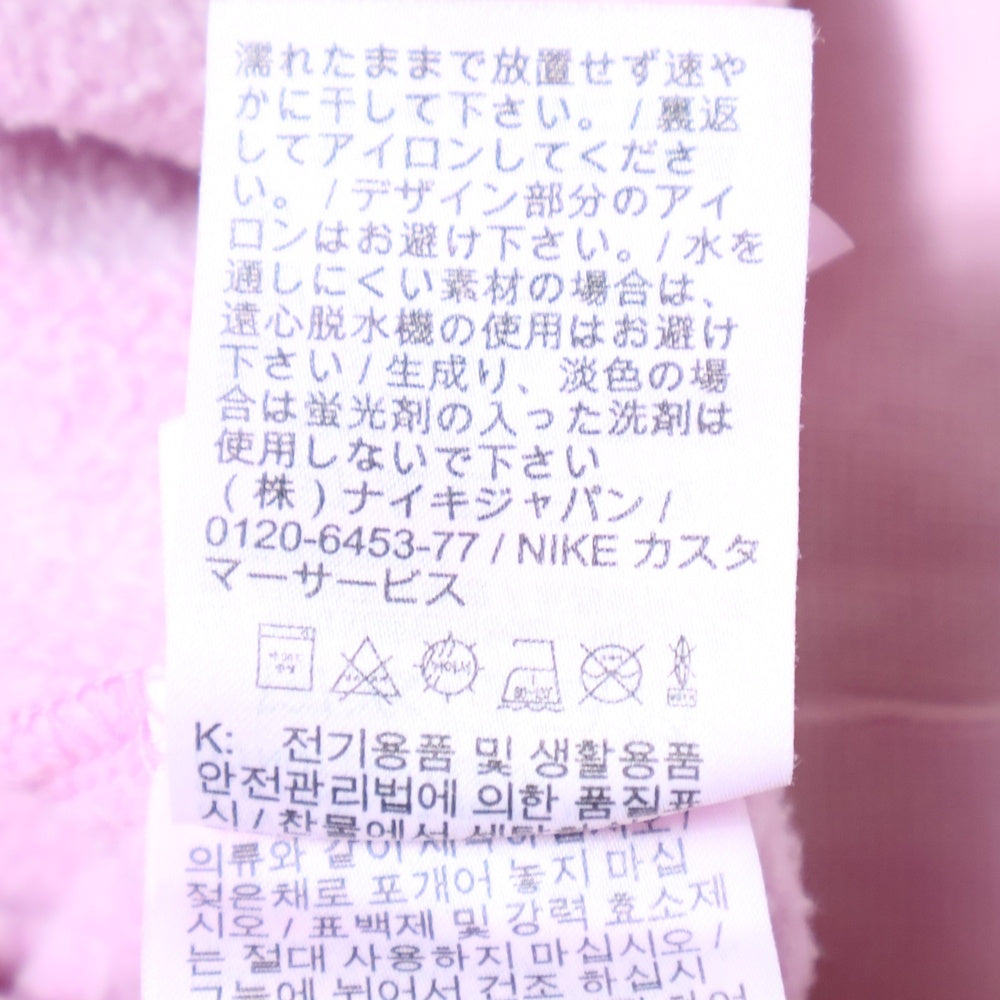 濡れたままで放置せず速や
かに干して下さい。/裏返
してアイロンしてくださ
い。/デザイン部分のアイ
ロンはお避け下さい。/水を
通しにくい素材の場合は、
遠心脱水機の使用はお避け
下さい/生成り、淡色の場
合は蛍光剤の入った洗剤は
使用しないで下さい
(株)ナイキジャパン/
0120-6453-77/NIKE カスタ
マーサービス
K: 전기용품 및 생활용품
안전관리법에 의한 품질표
시/찬물에서
의류와 같이 놓지 마십
젖은채로 포개어
시오/표백제 및 강력 효소제
는 절대 사용하지 마십시오/
그늘에 뉘어서 건조 하십시